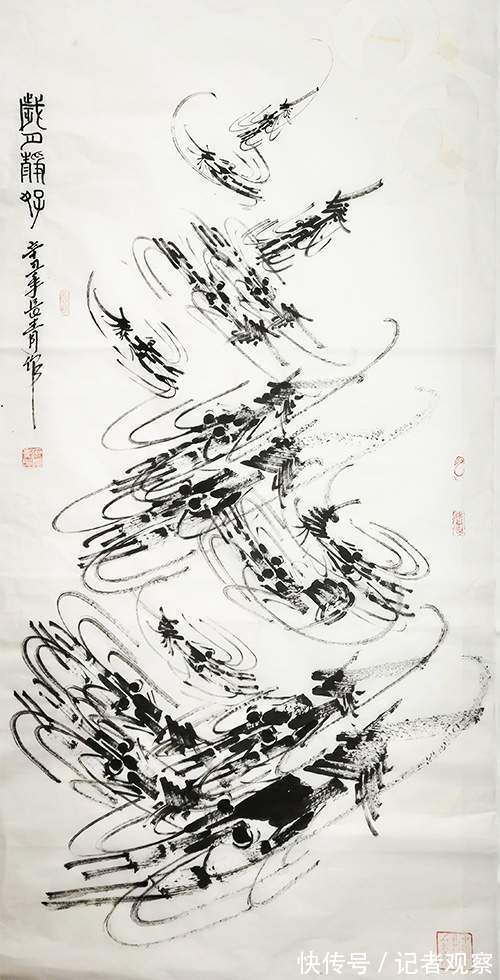 歲月靜好
辛丑年長青作
快传号 / 记者观察